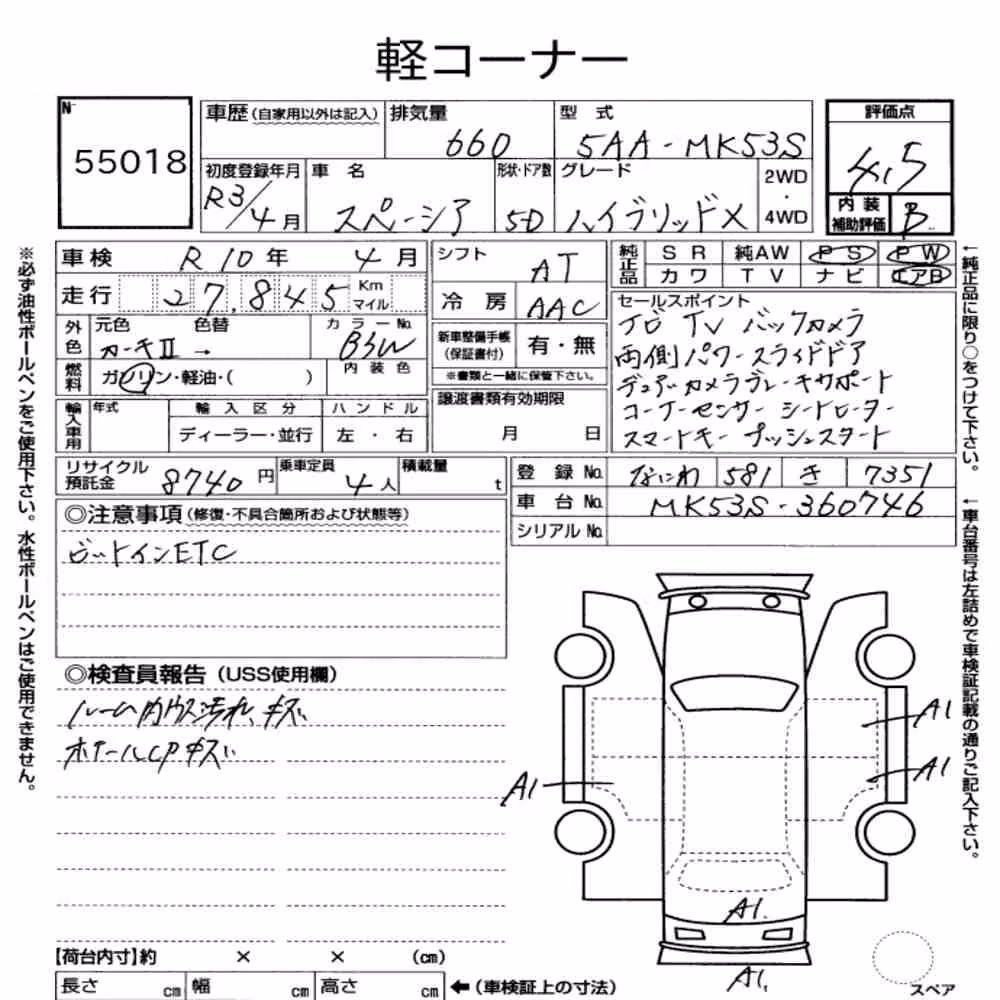 軽コーナー
№
55018
車歴(自家用以外は記入)
排気量
660
型 式
5AA-MK53S
評価点
4.5
初度登録年月
R3/4月
車 名
スペーシア
形状・ドア数
5D
グレード
ハイブリッドX
2WD
・
4WD
内 装
補助評価
B
車検 R10年 4月
シフト AT
純正品
SR 純AW PS PW
カワ TV ナビ エアB
走行 27,845 Km マイル
冷 房 AAC
セールスポイント
ナビ TV バックカメラ
両側パワースライドドア
デュアルカメラブレーキサポート
コーナーセンサー シートヒーター
スマートキー プッシュスタート
外色 元色 色替 カラーNo.
ガーキⅡ → BSW
新車整備手帳
(保証書付)
有・無
※書類と一緒に保管下さい。
燃料 ガソリン・軽油・( ) 内 装 色
譲渡書類有効期限
月 日
輸入車用 年式 輸 入 区 分 ハ ン ド ル
ディーラー・並行 左 ・ 右
リサイクル
預託金
8740円
乗車定員
4人
積載量
t
登 録 No. なにわ 581 き 7351
車 台 No. MK53S-360746
シリアル No.
◎注意事項(修復・不具合箇所および状態等)
ビルトインETC
◎検査員報告(USS使用欄)
ルーム内ウス汚れ、キズ
ホイールCPキズ
A1
A1
A1
A1.
A1,
【荷台内寸】約 × × (cm)
長さ cm 幅 cm 高さ cm
←(車検証上の寸法)
スペア
※必ず油性ボールペンをご使用下さい。水性ボールペンはご使用できません。
←純正品に限り○をつけて下さい。
←車台番号は左詰めで車検証記載の通りご記入下さい。